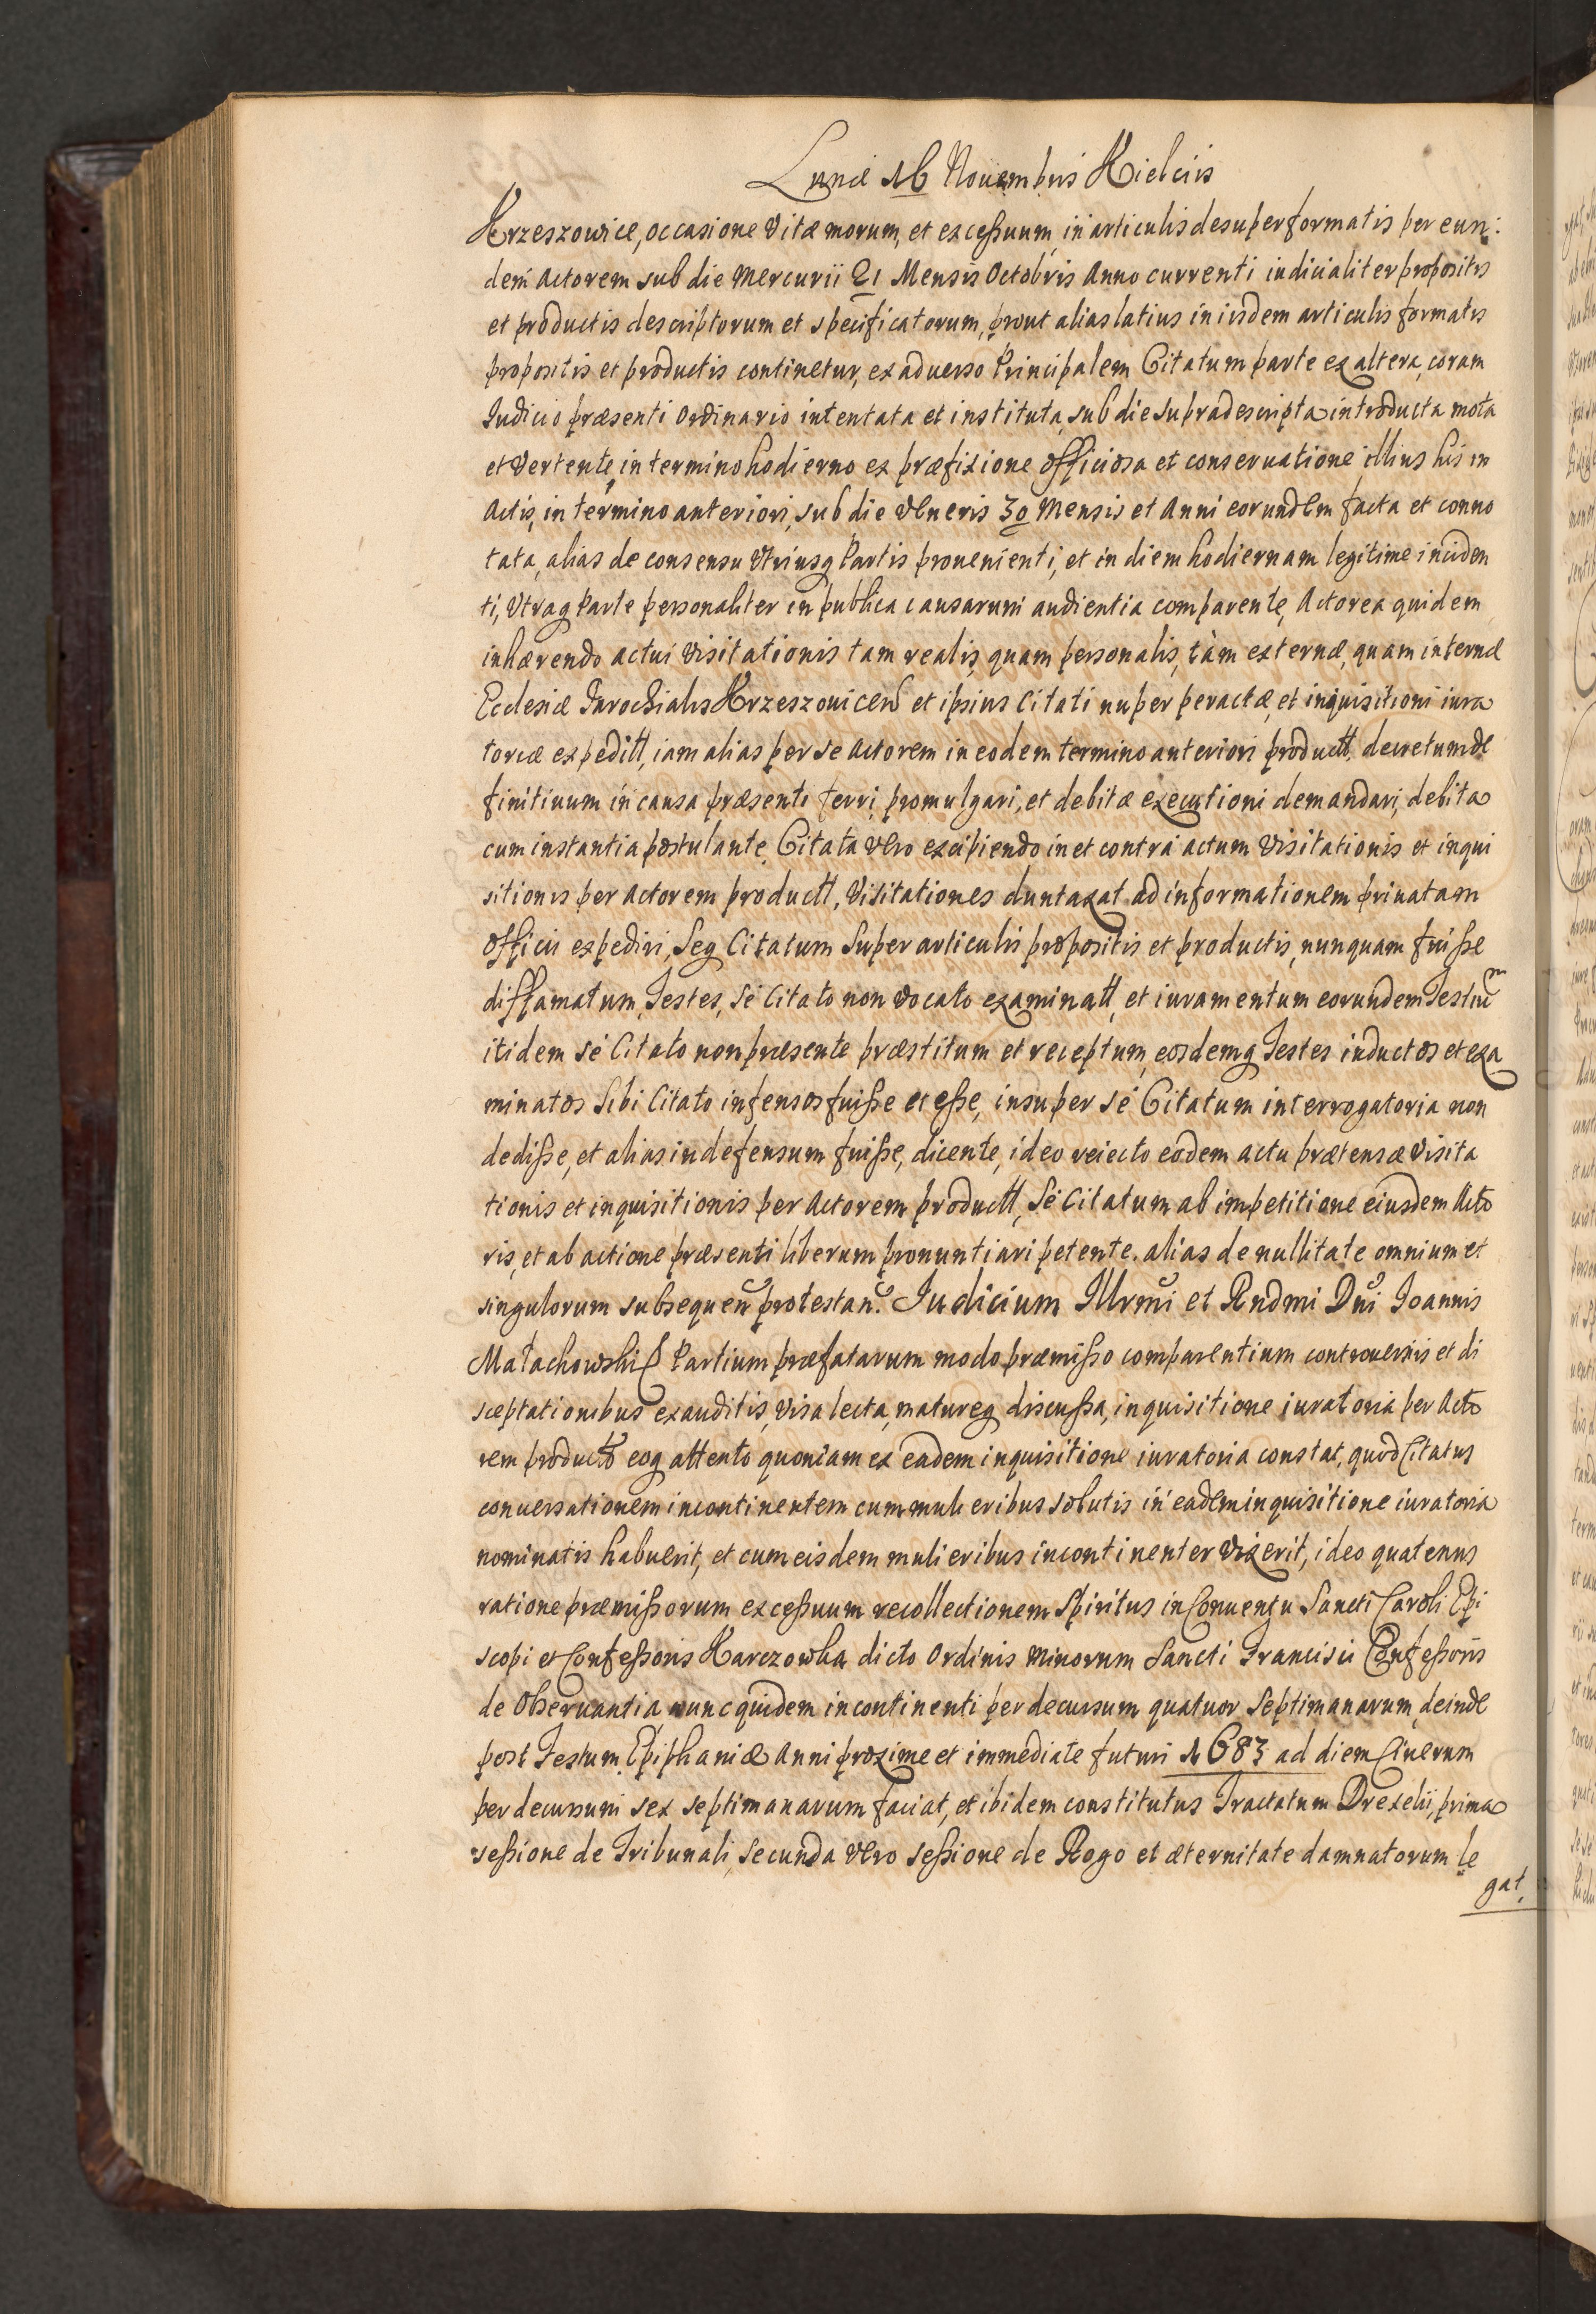 Lunæ 16 Nouembris Kielciis
Krzeszowice, occasione Vitæ morum, et excessuum, in articulis desuper formatis per eun:
dem Actorem sub die Mercurii 21 Mensis Octobris Anno currenti iudicialiter propositis
et productis descriptorum et specificatorum, prout alias latius in iisdem articulis formatis
propositis et productis continetur, ex aduerso Principalem Citatum parte ex altera, coram
Iudicio præsenti Ordinario intentata et instituta, sub die supradescripta introducta mota
et Vertente, in termino hodierno ex præfixione officiosa et conseruatione illius his in
Actis, in termino anteriori, sub die Veneris 30 Mensis et Anni eorundem facta et conno
tata, alias de consensu Vtriusq Partis prouenienti, et in diem hodiernam legitime inciden
ti, Vtraq Parte personaliter in publica causarum audientia comparente, Actorea quidem
inhærendo actui Visitationis tam realis, quam personalis, tàm externæ, quam internæ
Ecclesiæ Parochialis Krzeszouicen et ipsius Citati nuper peractæ, et inquisitioni iura
toriæ expeditt, iam alias per se Actorem in eodem termino anteriori productt, decretum de
finitiuum in causa præsenti ferri, promulgari, et debitæ executioni demandari, debita
cum instantia postulante, Citata Vero excipiendo in et contra actum Visitationis et inqui
sitionis per Actorem productt, Visitationes duntaxat ad informationem priuatam
Officii expediri, Seq Citatum super articulis propositis et productis, nunquam fuisse
diffamatum, Testes, sè Citato non Vocato examinatt, et iuramentum eorundem Testiu͞m
itidem sè Citato non præsente præstitum et receptum, eosdemq Testes inductos et exa
minatos Sibi Citato infensos fuisse et esse, insuper sè Citatum interrogatoria non
dedisse, et alias indefensum fuisse, dicente, ideo reiecto eodem actu prætensæ Visita
tionis et inquisitionis per Actorem productt, Sè Citatum ab impetitione eiusdem Acto
ris, et ab actione præsenti liberum pronuntiari petente. alias de nullitate omnium et
singulorum subsequen protestan. Iudicium Illrmi et Rndmi Dni Ioannis
Małachowski Partium præfatarum modo præmisso comparentium controuersiis et di
sceptationibus exauditis, Visa lecta, matureq discussa, inquisitione iuratoria per Acto
rem producto eoq attento quoniam ex eadem inquisitione iuratoria constat, quòd Citatus
conuersationem incontinentem cum mulieribus solutis in eadem inquisitione iuratoria
nominatis habuerit, et cum eisdem mulieribus incontinenter Vixerit, ideo quatenus
ratione præmissorum excessuum recollectionem Spiritus in Conuentu Sancti Caroli Epi
scopi et Confessoris Karczowka dicto Ordinis Minorum Sancti Francisci Confessoris
de Obseruantia, nunc quidem in continenti per decursum quatuor Septimanarum, deinde
post Festum Epiphaniæ Anni proxime et immediate futuri 1683 ad diem Cinerum
per decursum sex septimanarum faciat, et ibidem constitutus Tractatum Drexelii, prima
sessione de Tribunali, Secunda Vero sessione de Rogo et æternitate damnatorum le
gat.